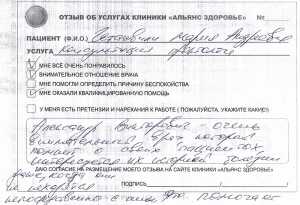 ОТЗЫВ ОБ УСЛУГАХ КЛИНИКИ «АЛЬЯНС ЗДОРОВЬЕ» №
ПАЦИЕНТ (Ф.И.О.) Мария
УСЛУГА Консультация
МНЕ ВСЕ ОЧЕНЬ ПОНРАВИЛОСЬ
ВНИМАТЕЛЬНОЕ ОТНОШЕНИЕ ВРАЧА
МНЕ ПОМОГЛИ ОПРЕДЕЛИТЬ ПРИЧИНУ БЕСПОКОЙСТВА
МНЕ ОКАЗАЛИ КВАЛИФИЦИРОВАННУЮ ПОМОЩЬ
У МЕНЯ ЕСТЬ ПРЕТЕНЗИИ И НАРЕКАНИЯ К РАБОТЕ ( ПОЖАЛУЙСТА, УКАЖИТЕ КАКИЕ!)
Александр Викторович - очень
внимательный врач, который
о своих пациентах,
интересуется их историей
ДАЮ СОГЛАСИЕ НА РАЗМЕЩЕНИЕ МОЕГО ОТЗЫВА НА САЙТЕ КЛИНИКИ «АЛЬЯНС ЗДОРОВЬЕ»
даже, когда они
ПОДПИСЬ
не
помогает